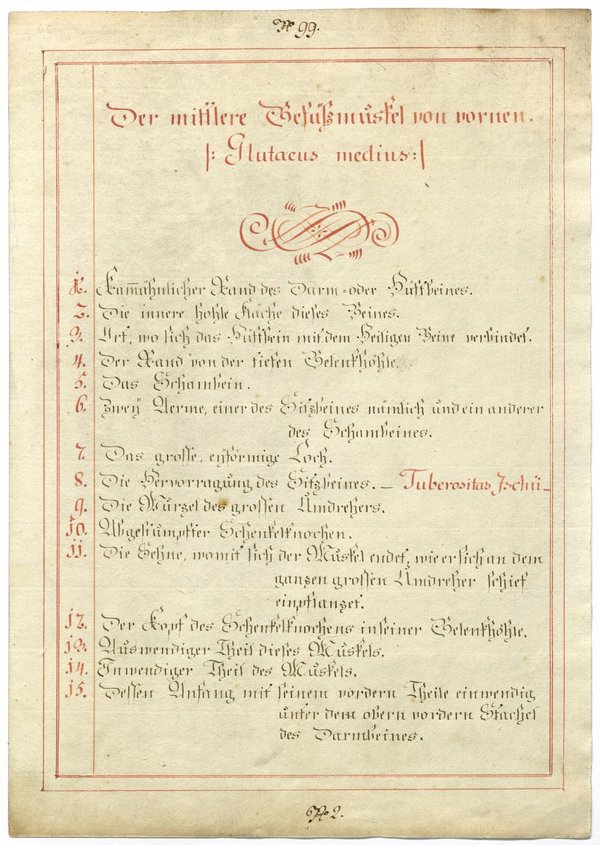 № 99.
Der mittlere Gesäßmuskel von vornen.
|: Glutaeus medius :|
1. Kam̅ähnlicher Rand des Darm- oder Hüftbeines.
2. Die innere hohle Fläche dieses Beines.
3. Ort, wo sich das Hüftbein mit dem Heiligen Beine verbindet.
4. Der Rand von der tiefen Gelenkhöhle.
5. Das Schambein.
6. Zweÿ Aerme, einer des Sitzbeines nämlich und ein anderer
des Schambeines.
7. Das grosse, eyförmige Loch.
8. Die Hervorragung des Sitzbeines. – Tuberositas Jschii –
9. Die Wurzel des grossen Umdrehers.
10. Abgestumpfter Schenkelknochen.
11. Die Sehne, womit sich der Muskel endet, wie er sich an dem
ganzen grossen Umdreher schief
einpflanzet.
12. Der Kopf des Schenkelknochens in seiner Gelenkhöhle.
13. Auswendiger Theil dieses Muskels.
14. Inwendiger Theil des Muskels.
15. Dessen Anfang mit seinem vordern Theile einwendig
unter dem obern vordern Stachel
des Darmbeines.
№ 2.